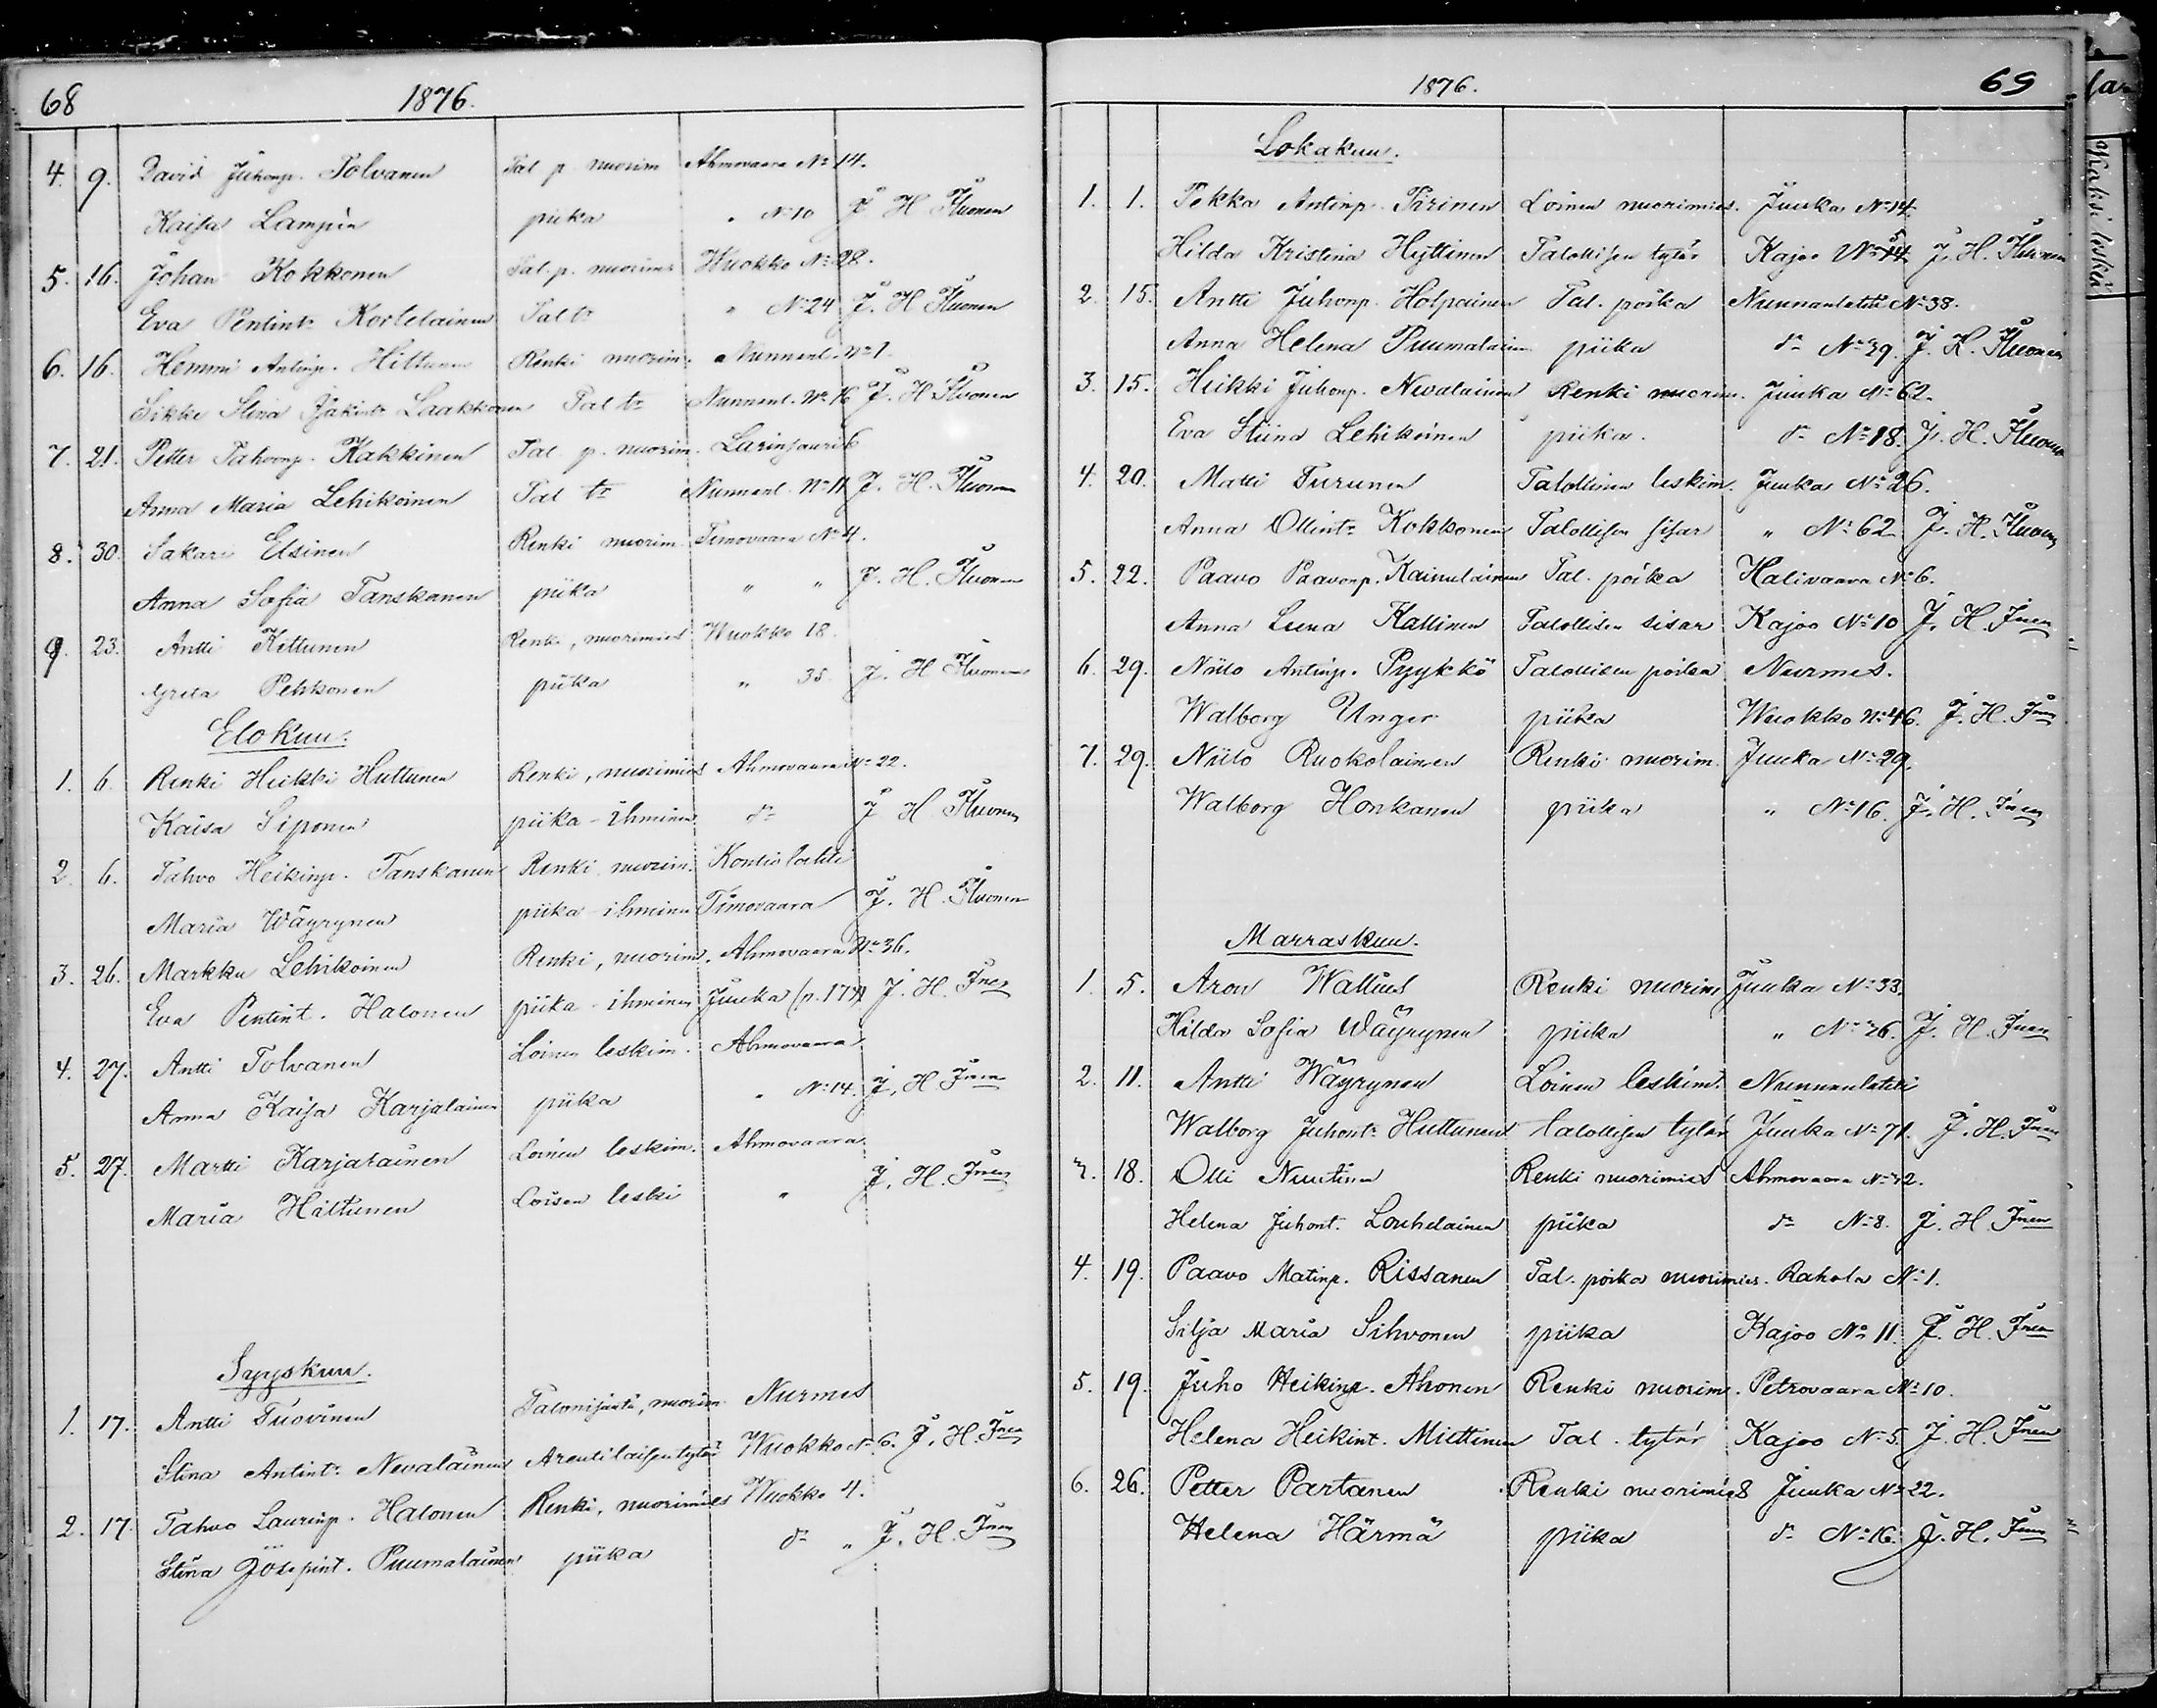 68 1876.
4. 9. David Juhonp. Tolvanen Tal. p. nuorim Ahmovaara No 14.
Kaisa Lampin piika " No 10 J H Iluonen
5. 16. Johan Kokkonen Tal. p. nuorimies Wuokko No 28.
Eva Pentintr Kortelainen Tal tr " No 24 J. H Iluonen
6. 16. Hemmi Antinp. Hiltunen Renki nuorim. Nunnanl. No 1.
Sikke Stina Isakintr Laakkonen Tal tr Nunnanl. No 16 J. H Iluonen
7. 21. Petter Tahvonp. Kakkinen Tal. p. nuorim. Larinsaari 6
Anna Maria Lehikoinen Tal tr Nunnanl. No 11 J. H. Iluonen
8. 30. Sakari Elsinen Renki nuorim Timovaara No 4.
Anna Sofia Tanskanen piika " " J. H. Iluonen
9. 23. Antti Kettunen Renki, nuorimies Wuokko 18.
Greta Pehkonen piika " 35. J. H Iluonen
Elokuu.
1. 6. Renki Heikki Huttunen Renki, nuorimies Ahmovaara No 22.
Kaisa Siponen piika-ihminen do J H Iluonen
2. 6. Tahvo Heikinp. Tanskanen Renki nuorim. Kontiolahti
Maria Wäyrynen piika-ihminen Timovaara J. H. Iluonen
3. 26. Markku Lehikoinen Renki, nuorim. Ahmovaara No 36.
Eva Pentint. Halonen piika-ihminen Juuka J. H. Inen
4. 27. Antti Tolvanen Loinen leskim. Ahmovaara
Anna Kaisa Karjalainen piika " No 14. J. H Inen
5. 27. Martti Karjalainen Loinen leskim. Ahmovaara
Maria Hiltunen Loisen leski " J. H. Inen
Syyskuu.
1. 17. Antti Tuovinen Talonisäntä, nuorim Nurmes
Stina Antintr Nevalainen Arentilaisen tytär Wuokko No 6. J. H. Inen
2. 17. Tahvo Laurinp. Halonen Renki, nuorimies Wuokko 4.
Stina Josepint. Puumalainen piika do " J. H. Inen
1876. 69
Lokakuu.
1. 1. Pekka Antinp. Pärinen Loinen nuorimies. Juuka No 14.
Hilda Kristina Hyttinen Talollisen tytär Kajoo No 5 J. H. Iluonen
2. 15. Antti Juhonp. Holpainen Tal. poika Nunnanlahti No 38.
Anna Helena Puumalainen piika do No 39. J. H. Iluonen
3. 15. Heikki Juhonp. Nevalainen Renki nuorim. Juuka No 62.
Eva Stiina Lehikoinen piika. do No 18. J. H. Iluonen
4. 20. Matti Turunen Talollinen leskim. Juuka No 26.
Anna Ollintr Kokkonen Talollisen sisar " No 62. J. H. Iluonen
5. 22. Paavo Paavonp. Kainulainen Tal. poika Halivaara No 6.
Anna Leena Kallinen Talollisen sisar Kajoo No 10 J. H. Inen
6. 29. Niilo Antinp. Pyykkö Talollisen poika Nurmes.
Walborg Unger piika Wuokko No 46. J. H. Inen
7. 29. Niilo Ruokolainen Renki nuorim. Juuka No 29.
Walborg Honkanen piika " No 16. J. H. Inen
Marraskuu.
1. 5. Aron Wallius Renki nuorim Juuka No 33.
Hilda Sofia Wäyrynen piika " No 26. J. H. Inen
2. 11. Antti Wäyrynen Loinen leskim. Nunnanlahti
Walborg Juhontr Huttunen talollisen tytär Juuka No 71. J. H. Inen
3. 18. Olli Nuutinen Renki nuorimies Ahmovaara No 32.
Helena Juhont. Louhelainen piika do No 8. J. H Inen
4. 19. Paavo Matinp. Rissanen Tal. poika nuorimies. Rahola No 1.
Silja Maria Sihvonen piika Kajoo No 11. J. H. Inen
5. 19. Juho Heikinp. Ahonen Renki nuorim. Petrovaara No 10.
Helena Heikint. Miettinen Tal. tytär Kajoo No 5. J. H. Inen
6. 26. Petter Partanen Renki nuorimies Juuka No 22.
Helena Härmä piika do No 16. J. H. Inen